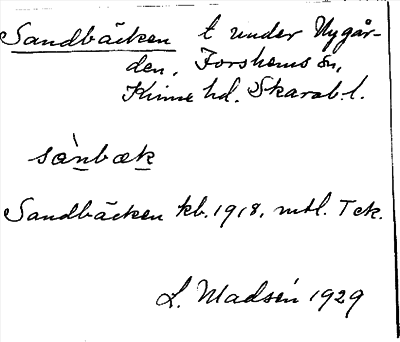 Sandbäcken t under Nygår-
den, Forshems sn,
Kinne hd. Skarab.l.
sànbæk
Sandbäcken kb. 1918. mtl. Tck.
L. Madsén 1929